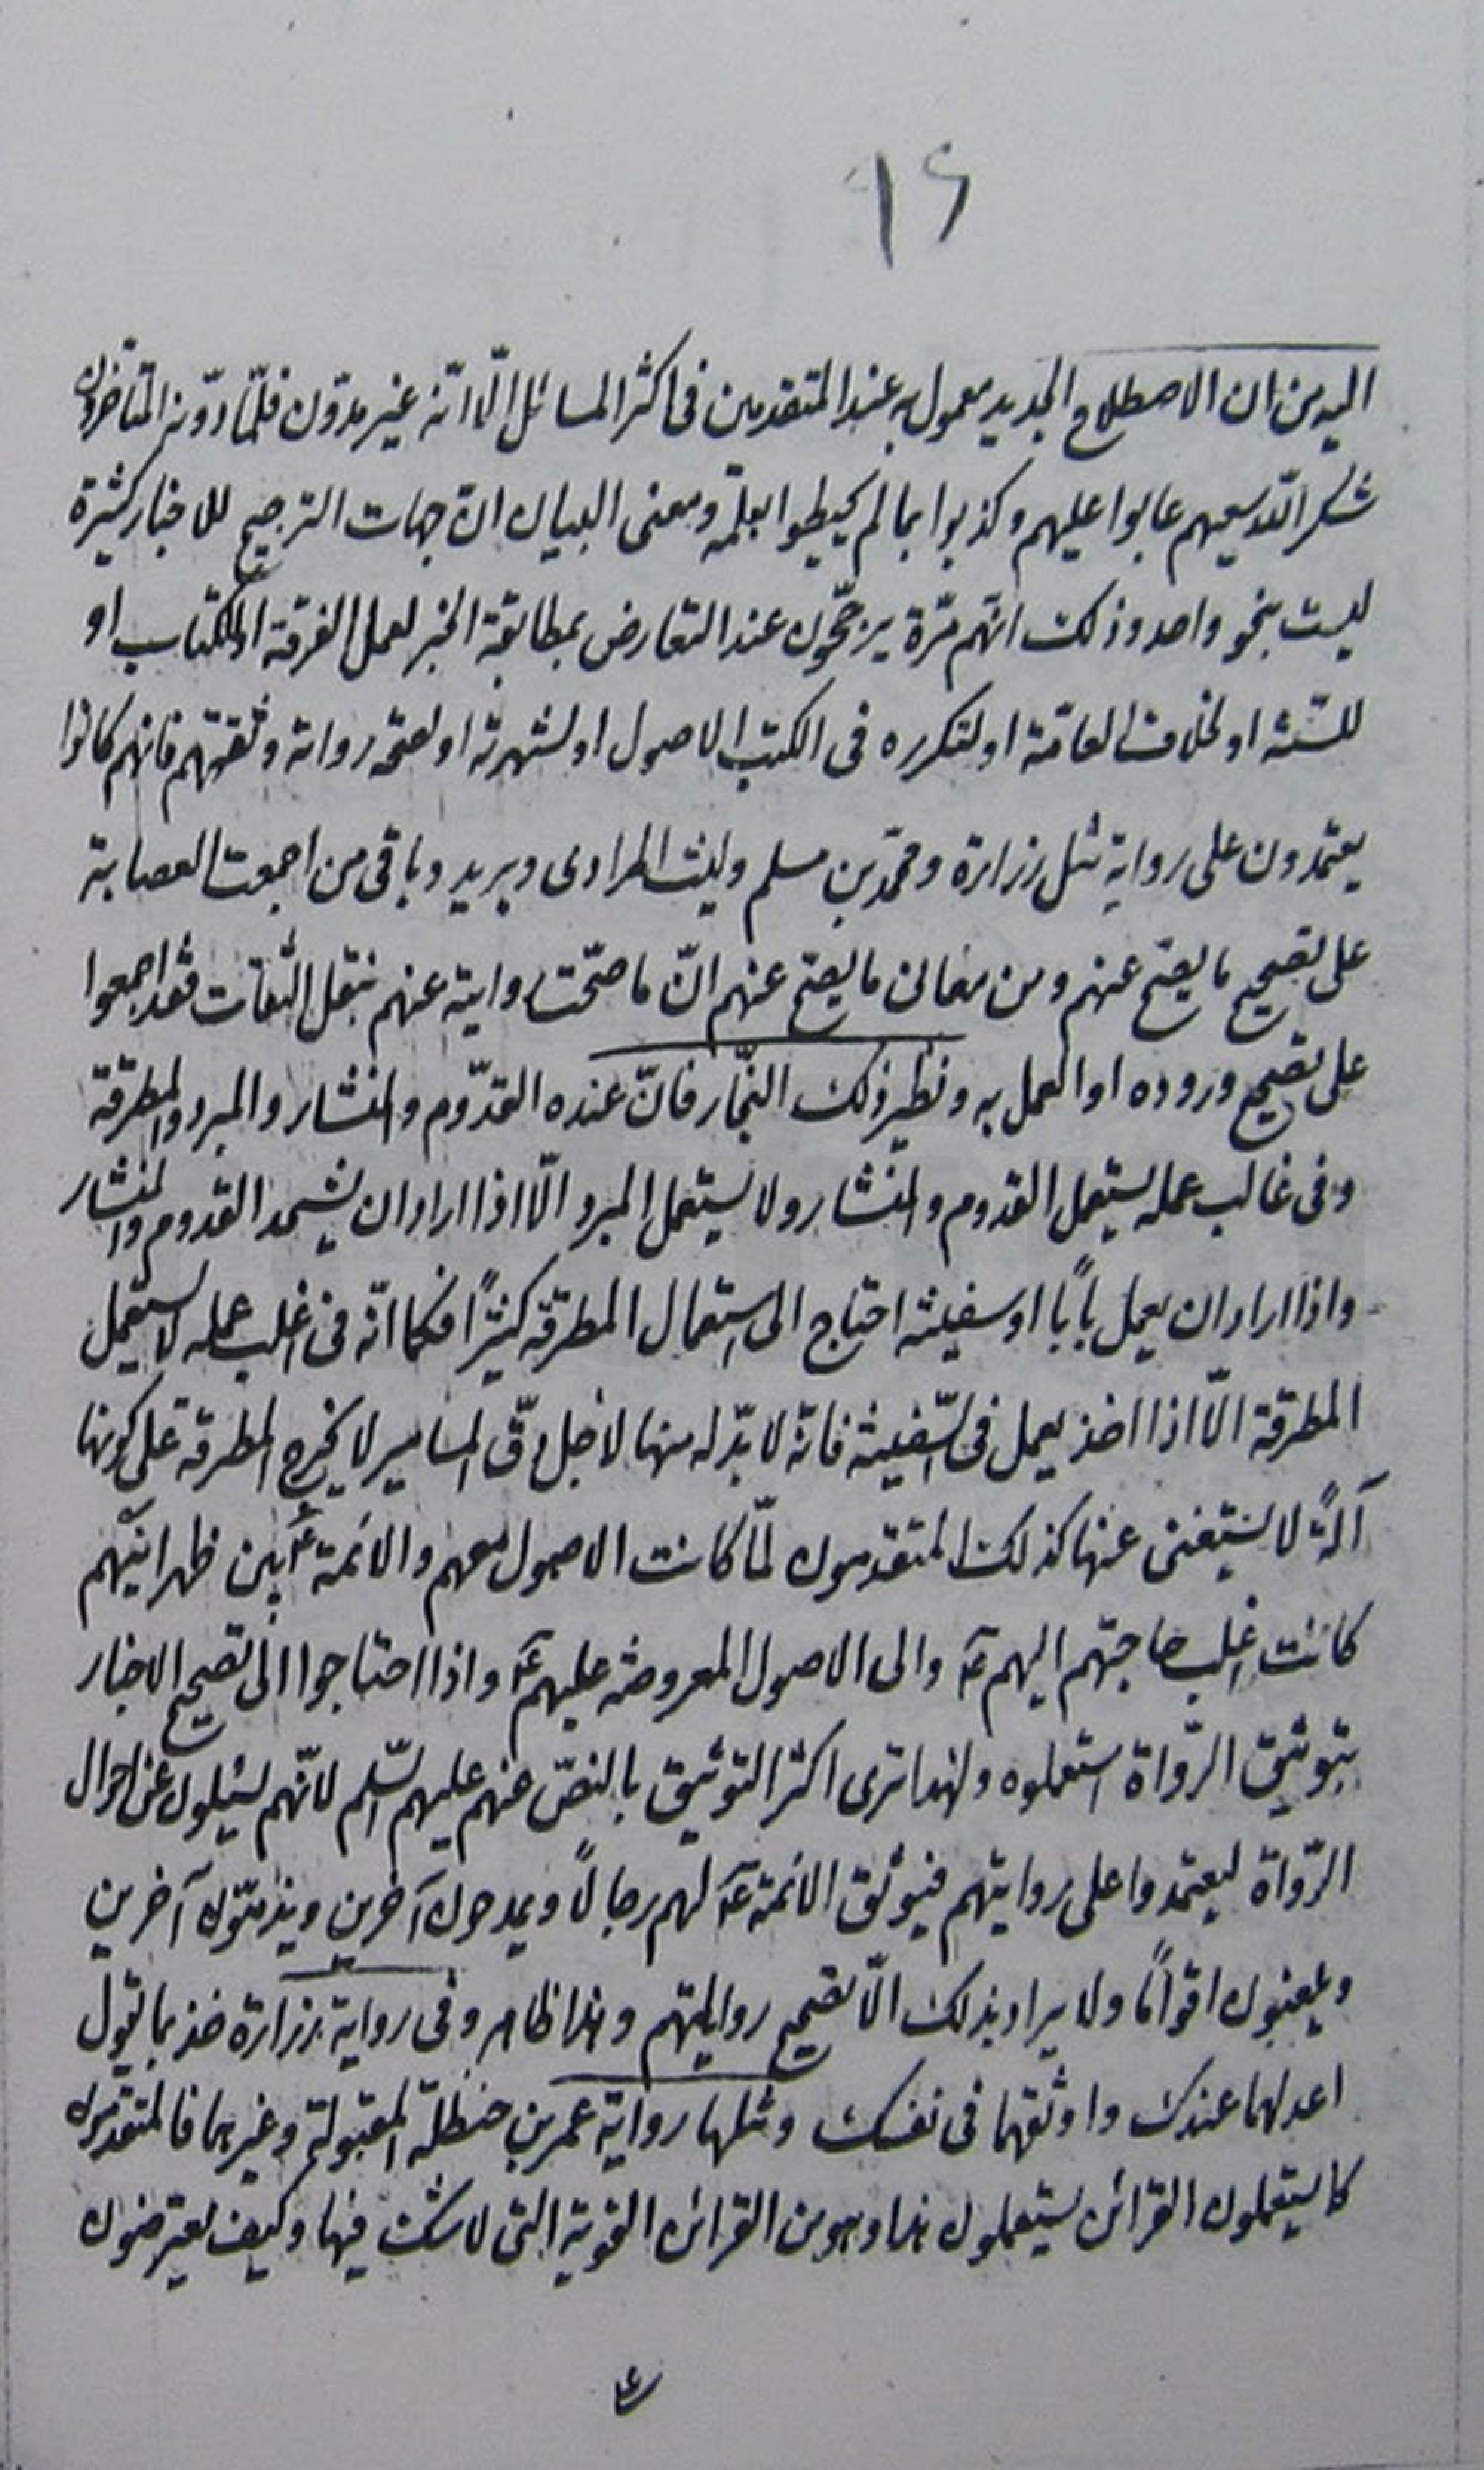 ١٦
اليه من ان الاصطلاح الجديد معمول به عند المتقدمين فى اكثر المسائل الّا انّه غير مدوّن فلمّا دوّنه المتاخرون
شكر اللّه سعيهم عابوا عليهم وكذبوا بما لم يحيطوا بعلمه ومعنى البيان انّ جهات الترجيح للاخبار كثيرة
ليست بنحو واحد وذلك انّهم مرّة يرجّحون عند التعارض بمطابقة الخبر لعمل الفرقة او للكتاب او
للسّنّة او لخلاف العامّة او لتكرره فى الكتب الاصول او لشهرته او لصحّة رواته وثقتهم فانهم كانوا
يعتمدون على رواية مثل زرارة ومحمّد بن مسلم وليث المرادى وبريد وباقى من اجمعت العصابة
على تصحيح ما يصحّ عنهم ومن معانى ما يصحّ عنهم انّ ما صحّت روايته عنهم بنقل الثقات فقد اجمعوا
على تصحيح وروده او العمل به ونظير ذلك النجّار فانّ عنده القدّوم والمنشار والمبرد والمطرقة
وفى غالب عمله يستعمل القدوم والمنشار ولا يستعمل المبرد الّا اذا اراد ان يشحد القدوم والمنشار
واذا اراد ان يعمل بابًا او سفينة احتاج الى استعمال المطرقة كثيرًا فكما انّه فى اغلب عمله لا يستعمل
المطرقة الّا اذا اخذ يعمل فى السّفينة فانّه لا بدّ له منها لاجل دقّ المسامير لا يخرج المطرقة على كونها
آلةً لا يستغنى عنها كذلك المتقدمون لمّا كانت الاصول معهم والائمة ع بين ظهرانيهم
كانت اغلب حاجتهم اليهم ع والى الاصول المعروضة عليهم ع واذا احتاجوا الى تصحيح الاخبار
بتوثيق الرّواة استعملوه ولهذا ترى اكثر التوثيق بالنصّ عنهم عليهم السّلم لانّهم يسئلون عن احوال
الرّواة ليعتمدوا على روايتهم فيوثق الائمة ع لهم رجالًا ويمدحون آخرين ويذمّون آخرين
ويلعنون اقوامًا ولا يراد بذلك الّا تصحيح روايتهم وهذا ظاهر وفى رواية زرارة خذ بما يقول
اعدلهما عندك واوثقهما فى نفسك ومثلها رواية عمر بن حنظلة المقبولة وغيرهما فالمتقدمون
كما يستعملون القرائن يستعملون هذا وهو من القرائن القوية التى لا شك فيها وكيف يعترضون